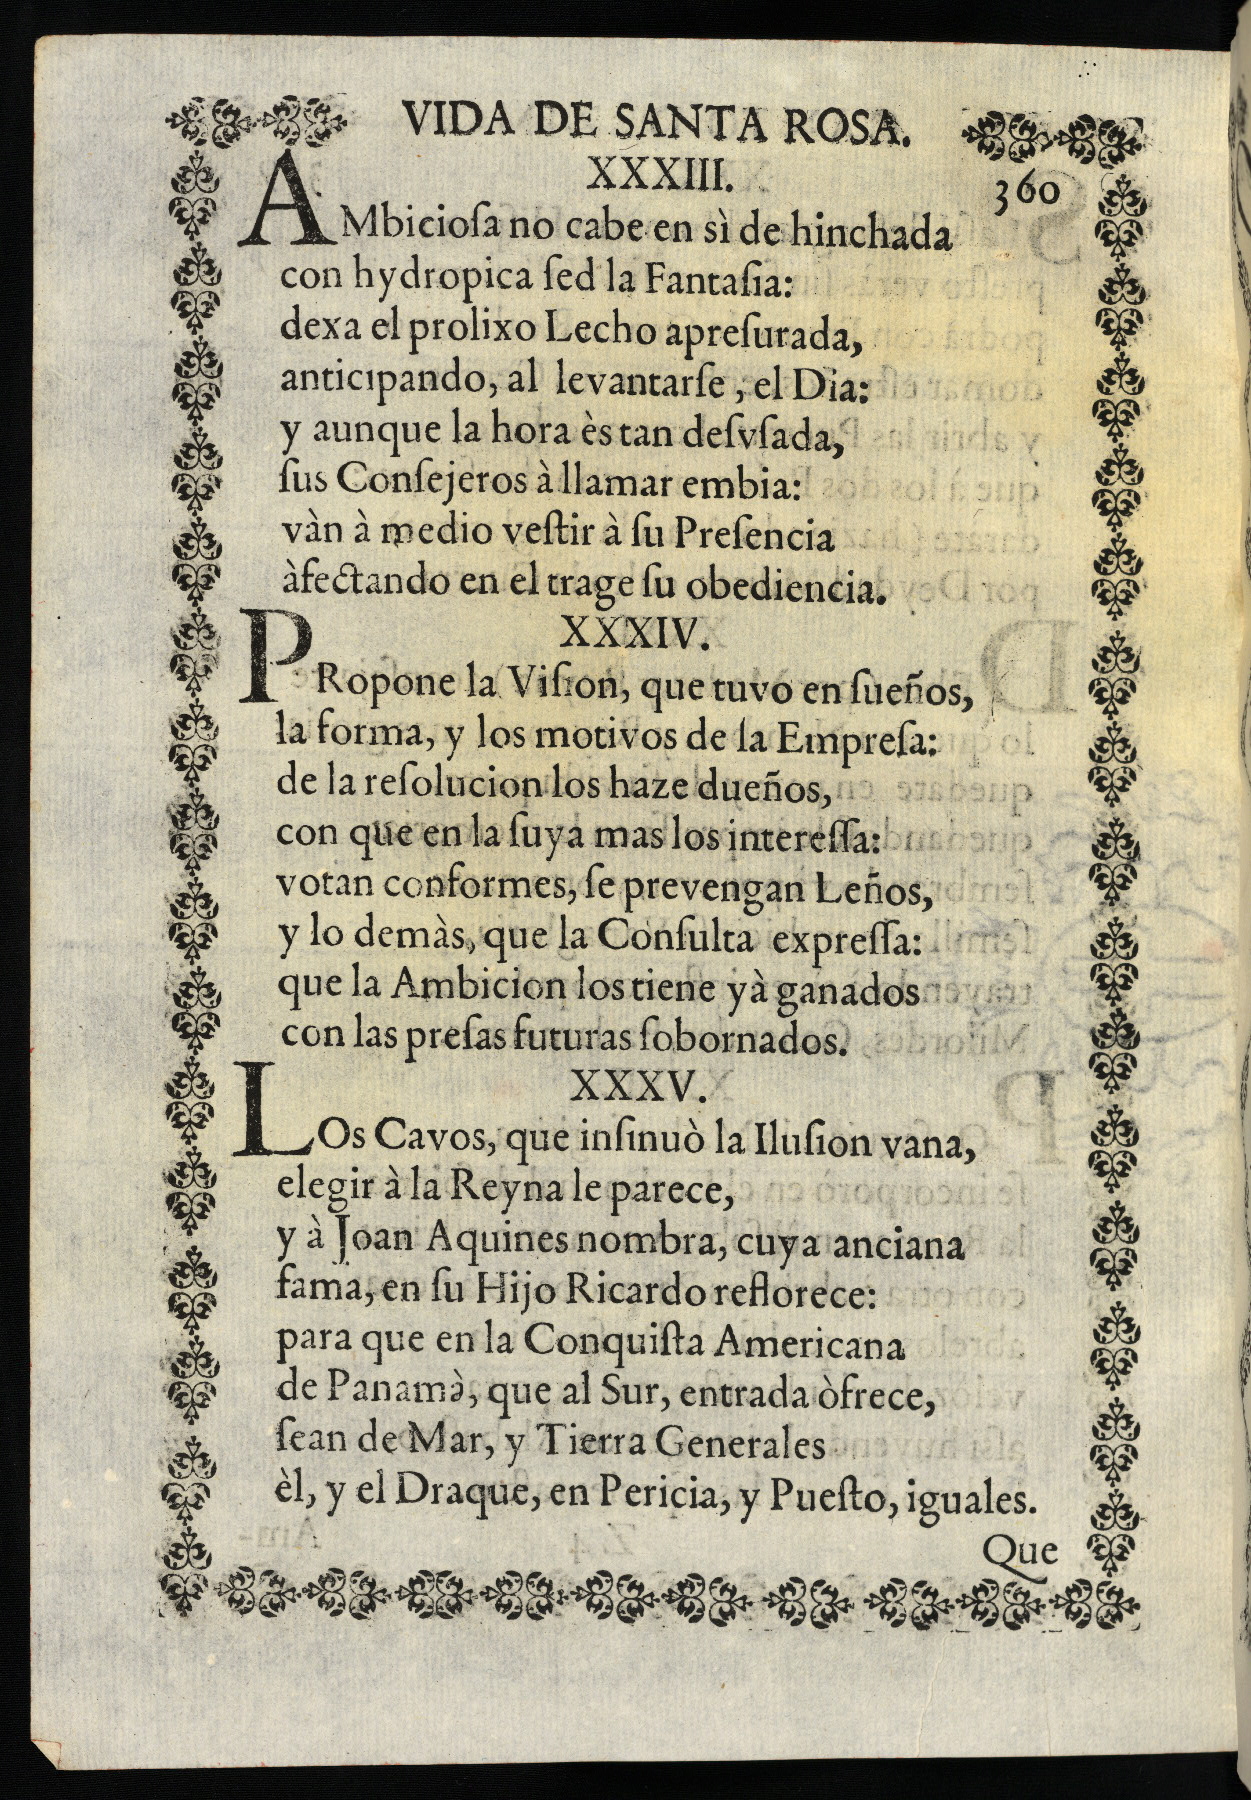 VIDA DE SANTA ROSA.
360
XXXIII.
AMbicioſa no cabe en sì de hinchada
con hydropica ſed la Fantaſia:
dexa el prolixo Lecho apreſurada,
anticipando, al levantarſe, el Dia:
y aunque la hora ès tan deſvſada,
ſus Conſejeros à llamar embia:
vàn à medio veſtir à ſu Preſencia
àfectando en el trage ſu obediencia.
XXXIV.
PRopone la Viſion, que tuvo en ſueños,
la forma, y los motivos de la Empreſa:
de la reſolucion los haze dueños,
con que en la ſuya mas los intereſſa:
votan conformes, ſe prevengan Leños,
y lo demàs, que la Conſulta expreſſa:
que la Ambicion los tiene yà ganados
con las preſas futuras ſobornados.
XXXV.
LOs Cavos, que inſinuò la Iluſion vana,
elegir à la Reyna le parece,
y à Joan Aquines nombra, cuya anciana
fama, en ſu Hijo Ricardo reflorece:
para que en la Conquiſta Americana
de Panamà, que al Sur, entrada òfrece,
ſean de Mar, y Tierra Generales
èl, y el Draque, en Pericia, y Pueſto, iguales.
Que